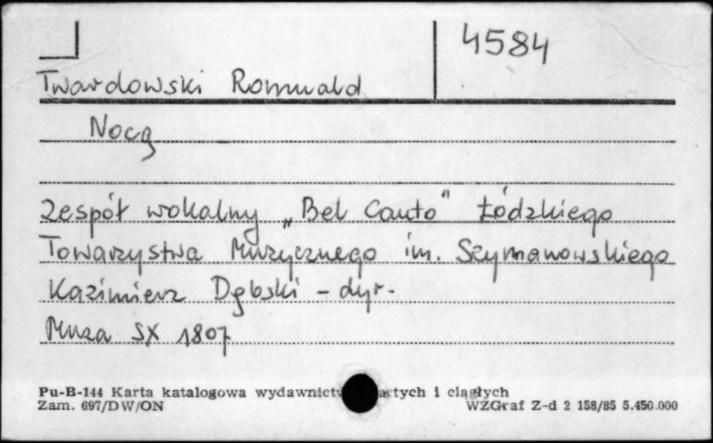 4584
Twardowski Romuald
Nocą
Zespół wokalny „Bel Canto" Łódzkiego
Towarzystwa Muzycznego im. Szymanowskiego
Kazimierz Dębski – dyr.
Muza SX 1807
Pu-B-144 Karta katalogowa wydawnictw artych i ciągłych
Zam. 697/DW/ON WZGraf Z-d 2 158/85 5.450.000